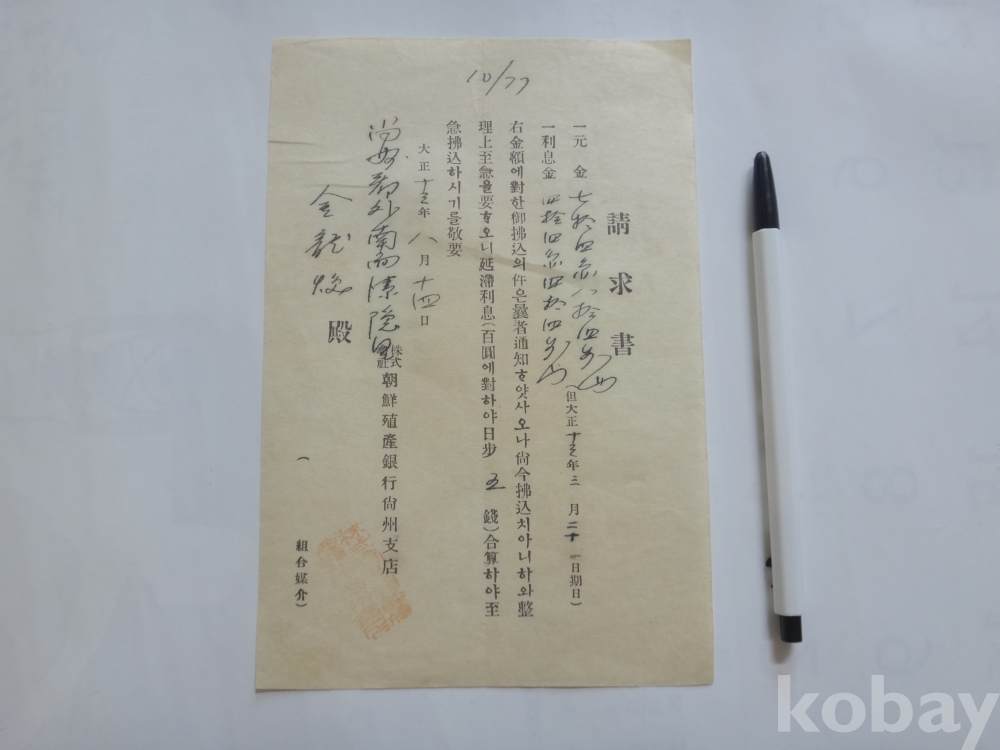 10/77
請求書
一元 金 七拾四円八拾四銭也
一利息金 四拾四円四拾四銭也
(但大正十三年三月二十一日期日)
右金額에對한御拂込의件은曩者通知하얏사오나尙今拂込치아니하와整
理上至急을要하오니延滯利息(百圓에對하야日步 五 錢)合算하야至
急拂込하시기를敬要
大正十三年八月十四日
株式會社朝鮮殖産銀行尙州支店
尙州郡外南面
金龍煥 殿
( 組合媒介)
kobay